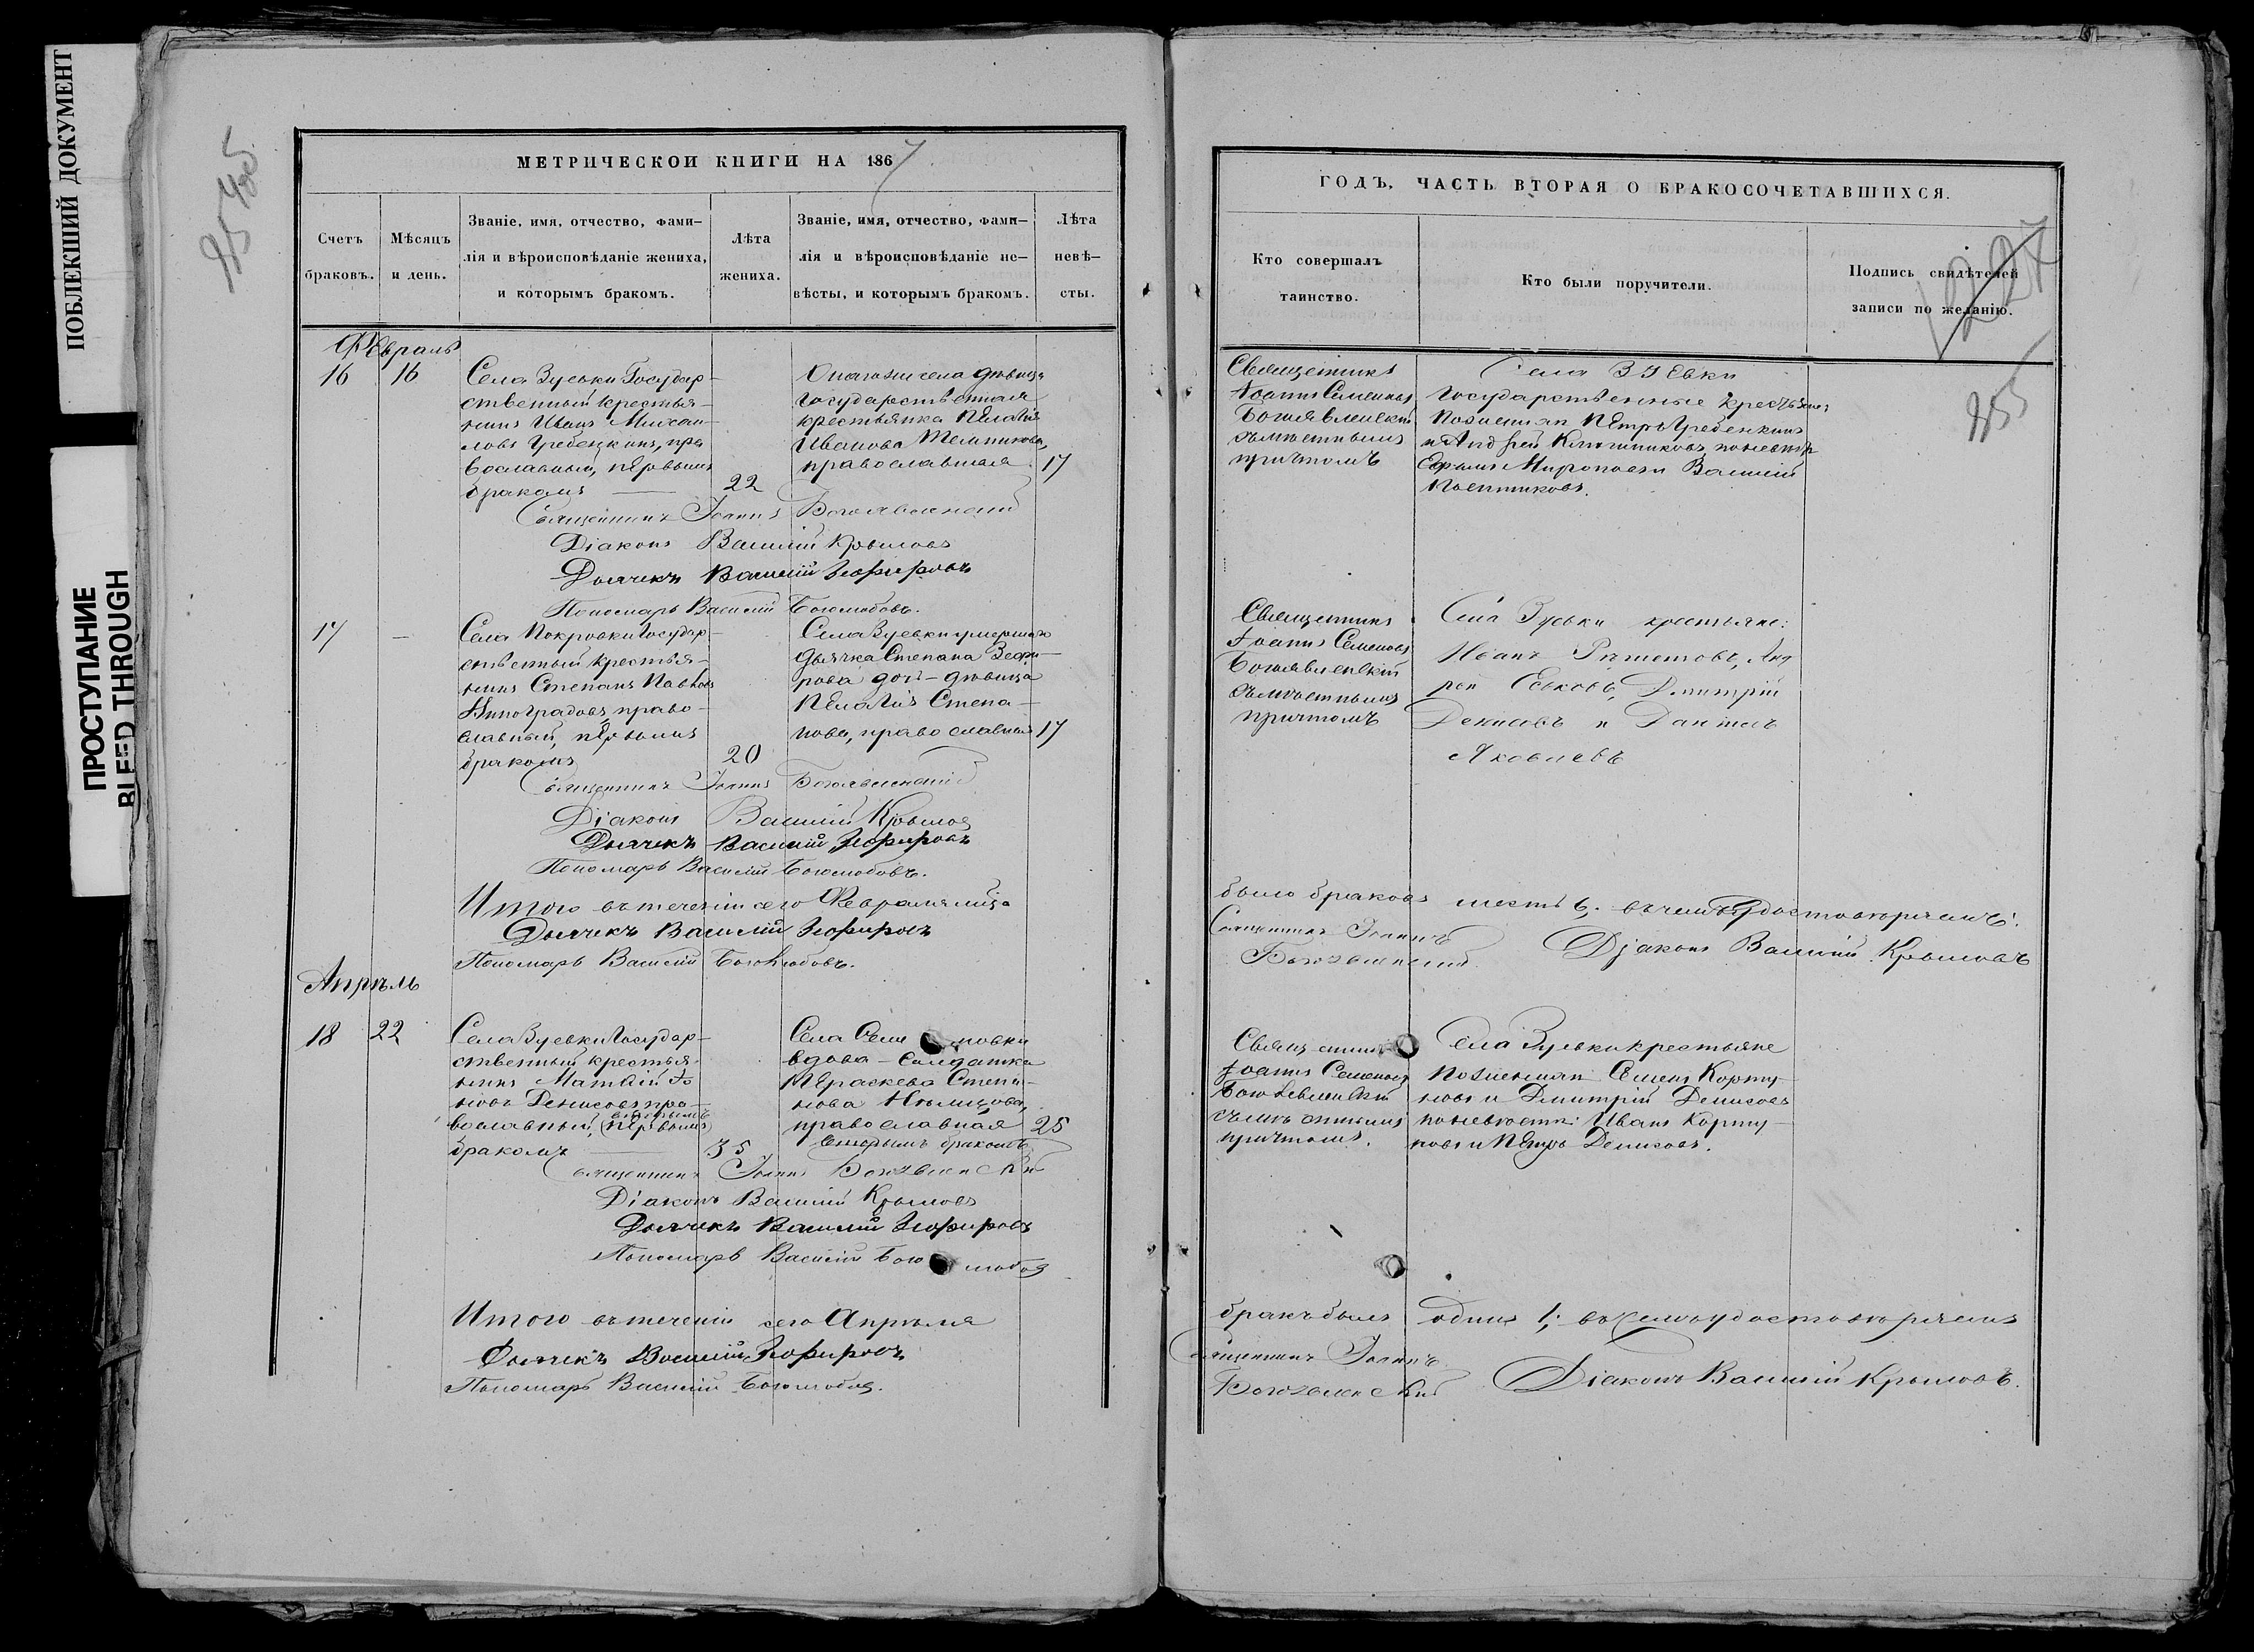 ПОБЛЕКШИЙ ДОКУМЕНТ
ПРОСТУПАНИЕ
BLEED THROUGH
МЕТРИЧЕСКОЙ КНИГИ НА 1867
Счетъ браковъ.
Мѣсяцъ и день.
Званіе, имя, отчество, фами-
лія и вѣроисповѣданіе жениха,
и которымъ бракомъ.
Лѣта
жениха.
Званіе, имя, отчество, фами-
лія и вѣроисповѣданіе не-
вѣсты, и которымъ бракомъ.
Лѣта
невѣ-
сты.
Февраль
16
16
Села Зуевки Государ-
ственный крестья-
нинъ Иванъ Михаи-
ловъ Гребенкинъ, пра
вославный, первымъ
бракомъ
22
Онагожъ села дѣвица
государственная
крестьянка Пелагія
Иванова
православная
17
Священникъ Іоаннъ Богоявленскій
Діаконъ Василій Крыловъ
Дьячекъ Василій Зефировъ
Пономарь Василій Боголюбовъ.
17
Села Покровки Государ-
ственный крестья-
нинъ Стефанъ Павловъ
Виноградовъ, право-
славный, первымъ
бракомъ
20
Села Зуевки умершаго
дьячка Степана Зефи-
рова дочь-дѣвица
Пелагія Степа-
нова, православная
17
Священникъ Іоаннъ Богоявленскій
Діаконъ Василій Крыловъ
Дьячекъ Василій Зефировъ
Пономарь Василій Боголюбовъ.
Итого въ теченіи сего Февраля мѣца
Дьячекъ Василій Зефировъ
Пономарь Василій Боголюбовъ.
Апрѣль
18
22
Села Зуевки Государ-
ственный крестья-
нинъ Матвій
Денисовъ пра-
вославный, первымъ
вторымъ
бракомъ
35
Села
вдова-солдатка
Параскева Степа-
нова
православная
вторымъ бракомъ
25
Священникъ Іоаннъ Богоявленскій
Діаконъ Василій Крыловъ
Дьячекъ Василій Зефировъ
Пономарь Василій Боголюбов
Итого въ теченіи сего Апрѣля
Дьячекъ Василій Зефировъ
Пономарь Василій Боголюбов.
ГОДЪ, ЧАСТЬ ВТОРАЯ О БРАКОСОЧЕТАВШИХСЯ.
Кто совершалъ
таинство.
Кто были поручители.
Подпись свидѣтелей
записи по желанію.
255
Священникъ
Іоаннъ Семеновъ
Богоявленскій
съ мѣстнымъ
причтомъ
Села Зуевки
государственные крестьяне:
по женихѣ Петръ Гребенкинъ
и Андрей
Ефимъ Мироновъ и Василій
Священникъ
Іоаннъ Семеновъ
Богоявленскій
съ мѣстнымъ
причтомъ
Села Зуевки крестьяне:
Иванъ Решетовъ, Анд
рей Еськовъ, Дмитрій
Денисовъ и Данилъ
Яковлевъ
было браковъ шесть 6; въ чемъ и удостовѣряемъ:
Священникъ Іоаннъ
Богоявленскій
Діаконъ Василій Крыловъ
Священникъ
Іоаннъ Семеновъ
Богоявленскій
съ мѣстнымъ
причтомъ.
Села Зуевки крестьяне
по женихѣ Семенъ Корту-
новъ и Дмитрій Денисовъ
по невѣстѣ: Иванъ Корту-
новъ и Петръ Денисовъ.
бракъ былъ одинъ 1; въ чемъ и удостовѣряемъ
Священникъ Іоаннъ
Богоявленскій
Діаконъ Василій Крыловъ.